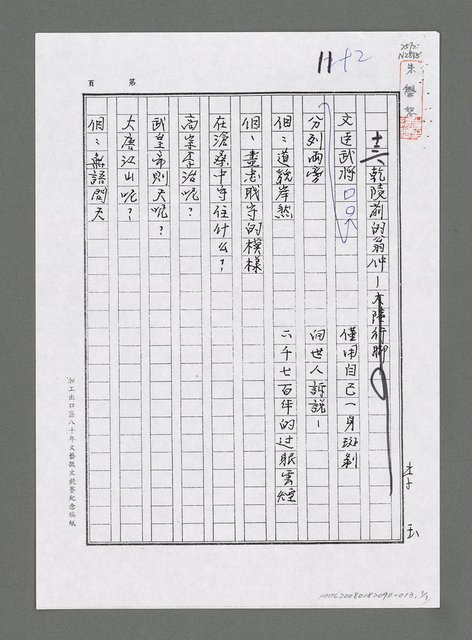 11+2
朱學恕
頁　第
十六、乾陵前的翁仲－大陸行腳
文達武將
分列兩旁
個：道貌岸然
個：盡忠職守的模樣
在滄桑中守住什么？
高宗歪治呢？
武皇帝則天呢？
大唐江山呢？
個：無語問天
僅用自己一身斑剝
向世人訴說－
二千七百年的过眼雲煙
李玉
加工出口區八十年文藝徵文競賽紀念稿紙
NMTL20080182090-013, 1/1